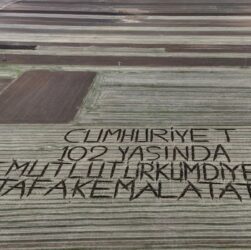 CUMHURİYET
102 YAŞINDA
E MUTLU TÜRKÜM DİYE
TAFA KEMAL ATAT